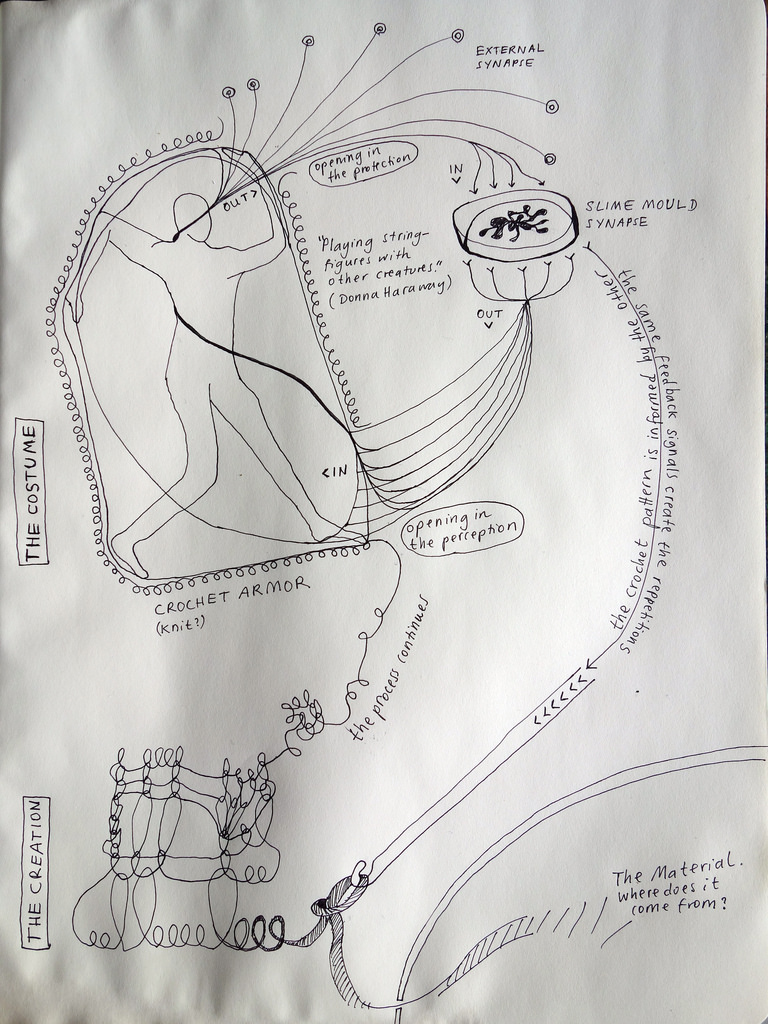 EXTERNAL
SYNAPSE
opening in
the protection
IN
OUT>
SLIME MOULD
SYNAPSE
"Playing string-
figures with
other creatures."
(Donna Haraway)
OUT
the same feedback signals create the reppetitions
the crochet pattern is informed by the other
<IN
THE COSTUME
opening in
the perception
CROCHET ARMOR
(Knit?)
the process continues
THE CREATION
The Material.
where does it
come from?